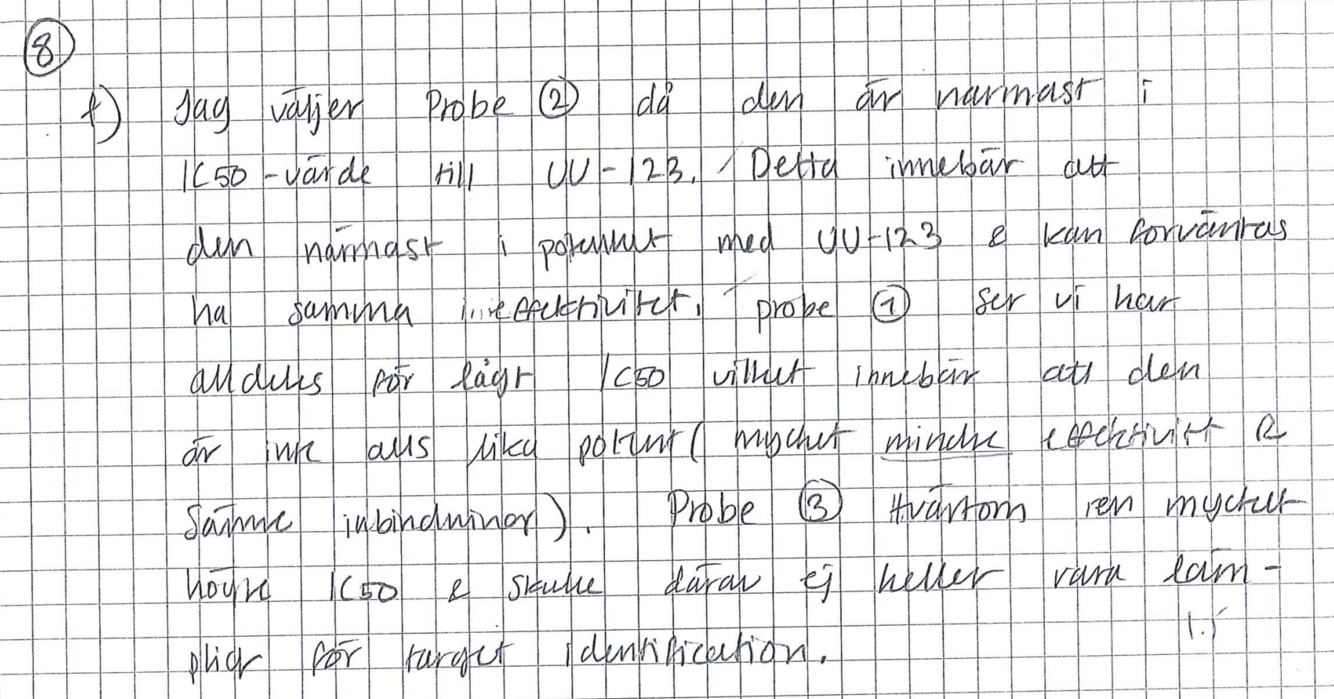 8
f) Jag väljer Probe 2 då den är närmast i
IC50-värde till UU-123. Detta innebär att
den närmast i potenhet med UU-123 & kan förväntas
ha samma effektivitet. probe 1 ser vi har
alldeles för lågt IC50 vilket innebär att den
är inte alls lika potent ( mycket mindre effektivitet &
Sämre inbindningar). Probe 3 tvärtom mycket
högre IC50 & skulle därav ej heller vara läm-
pligt för target identification.
1.5